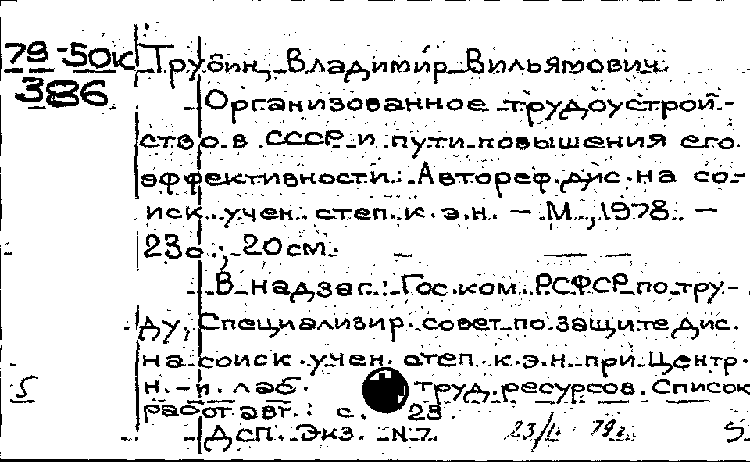 79-50к Трубин, Владимир Вильямович.
386
Организованное трудоустрой-
ство в СССР и пути повышения его
эффективности: Автореф. дис. на со-
иск. учен. степ. к.э.н. - М., 1978. -
23с.; 20см.
В надзаг.: Гос. ком. РСФСР по тру-
ду, Специализир. совет по защите дис.
на соиск. учен. степ. к.э.н. при Центр.
н.-и. лаб. труд. ресурсов. Список
работ авт.: с. 23.
Дсп. Экз. N 7.
79г.
S